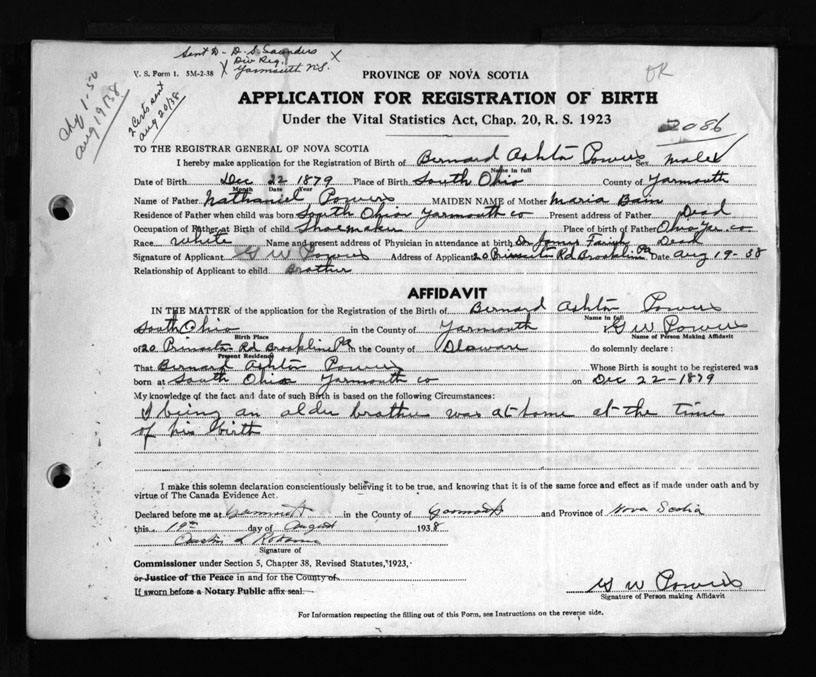 Sent to D. S. Saunders
Div Reg.
Yarmouth N.S.
V. S. Form 1. 5M-2-38
OK
chg 1.50
Aug 19/38
2 Certs sent
Aug 20/38
PROVINCE OF NOVA SCOTIA
APPLICATION FOR REGISTRATION OF BIRTH
Under the Vital Statistics Act, Chap. 20, R. S. 1923
2086
TO THE REGISTRAR GENERAL OF NOVA SCOTIA
I hereby make application for the Registration of Birth of Bernard Ashton Powers Sex male
Name in full
Date of Birth Dec 22 1879 Place of Birth South Ohio County of Yarmouth
Month Date Year
Name of Father Nathaniel Powers MAIDEN NAME of Mother Maria Bain
Residence of Father when child was born South Ohio Yarmouth co Present address of Father Dead
Occupation of Father at Birth of child Shoemaker Place of birth of Father Ohio Yar. co
Race white Name and present address of Physician in attendance at birth Dr James Dead
Signature of Applicant G W Powers Address of Applicant 20 Princeton Rd Brookline Pa Date Aug 19-38
Relationship of Applicant to child Brother
AFFIDAVIT
IN THE MATTER of the application for the Registration of the Birth of Bernard Ashton Powers
Name in full
South Ohio in the County of Yarmouth G W Powers
Birth Place Name of Person Making Affidavit
of 20 Princeton Rd Brookline Pa in the County of Dlaware do solemnly declare :
Present Residence
That Bernard Ashton Powers Whose Birth is sought to be registered was
born at South Ohio Yarmouth co on Dec 22-1879
My knowledge of the fact and date of such Birth is based on the following Circumstances:
I being an older brother was at home at the time
of his birth
I make this solemn declaration conscientiously believing it to be true, and knowing that it is of the same force and effect as if made under oath and by
virtue of The Canada Evidence Act.
Declared before me at Yarmouth in the County of Yarmouth and Province of Nova Scotia
this 19th day of August 1938
Signature of
Commissioner under Section 5, Chapter 38, Revised Statutes, 1923,
or Justice of the Peace in and for the County of
If sworn before a Notary Public affix seal.
G W Powers
Signature of Person making Affidavit
For Information respecting the filling out of this Form, see Instructions on the reverse side.